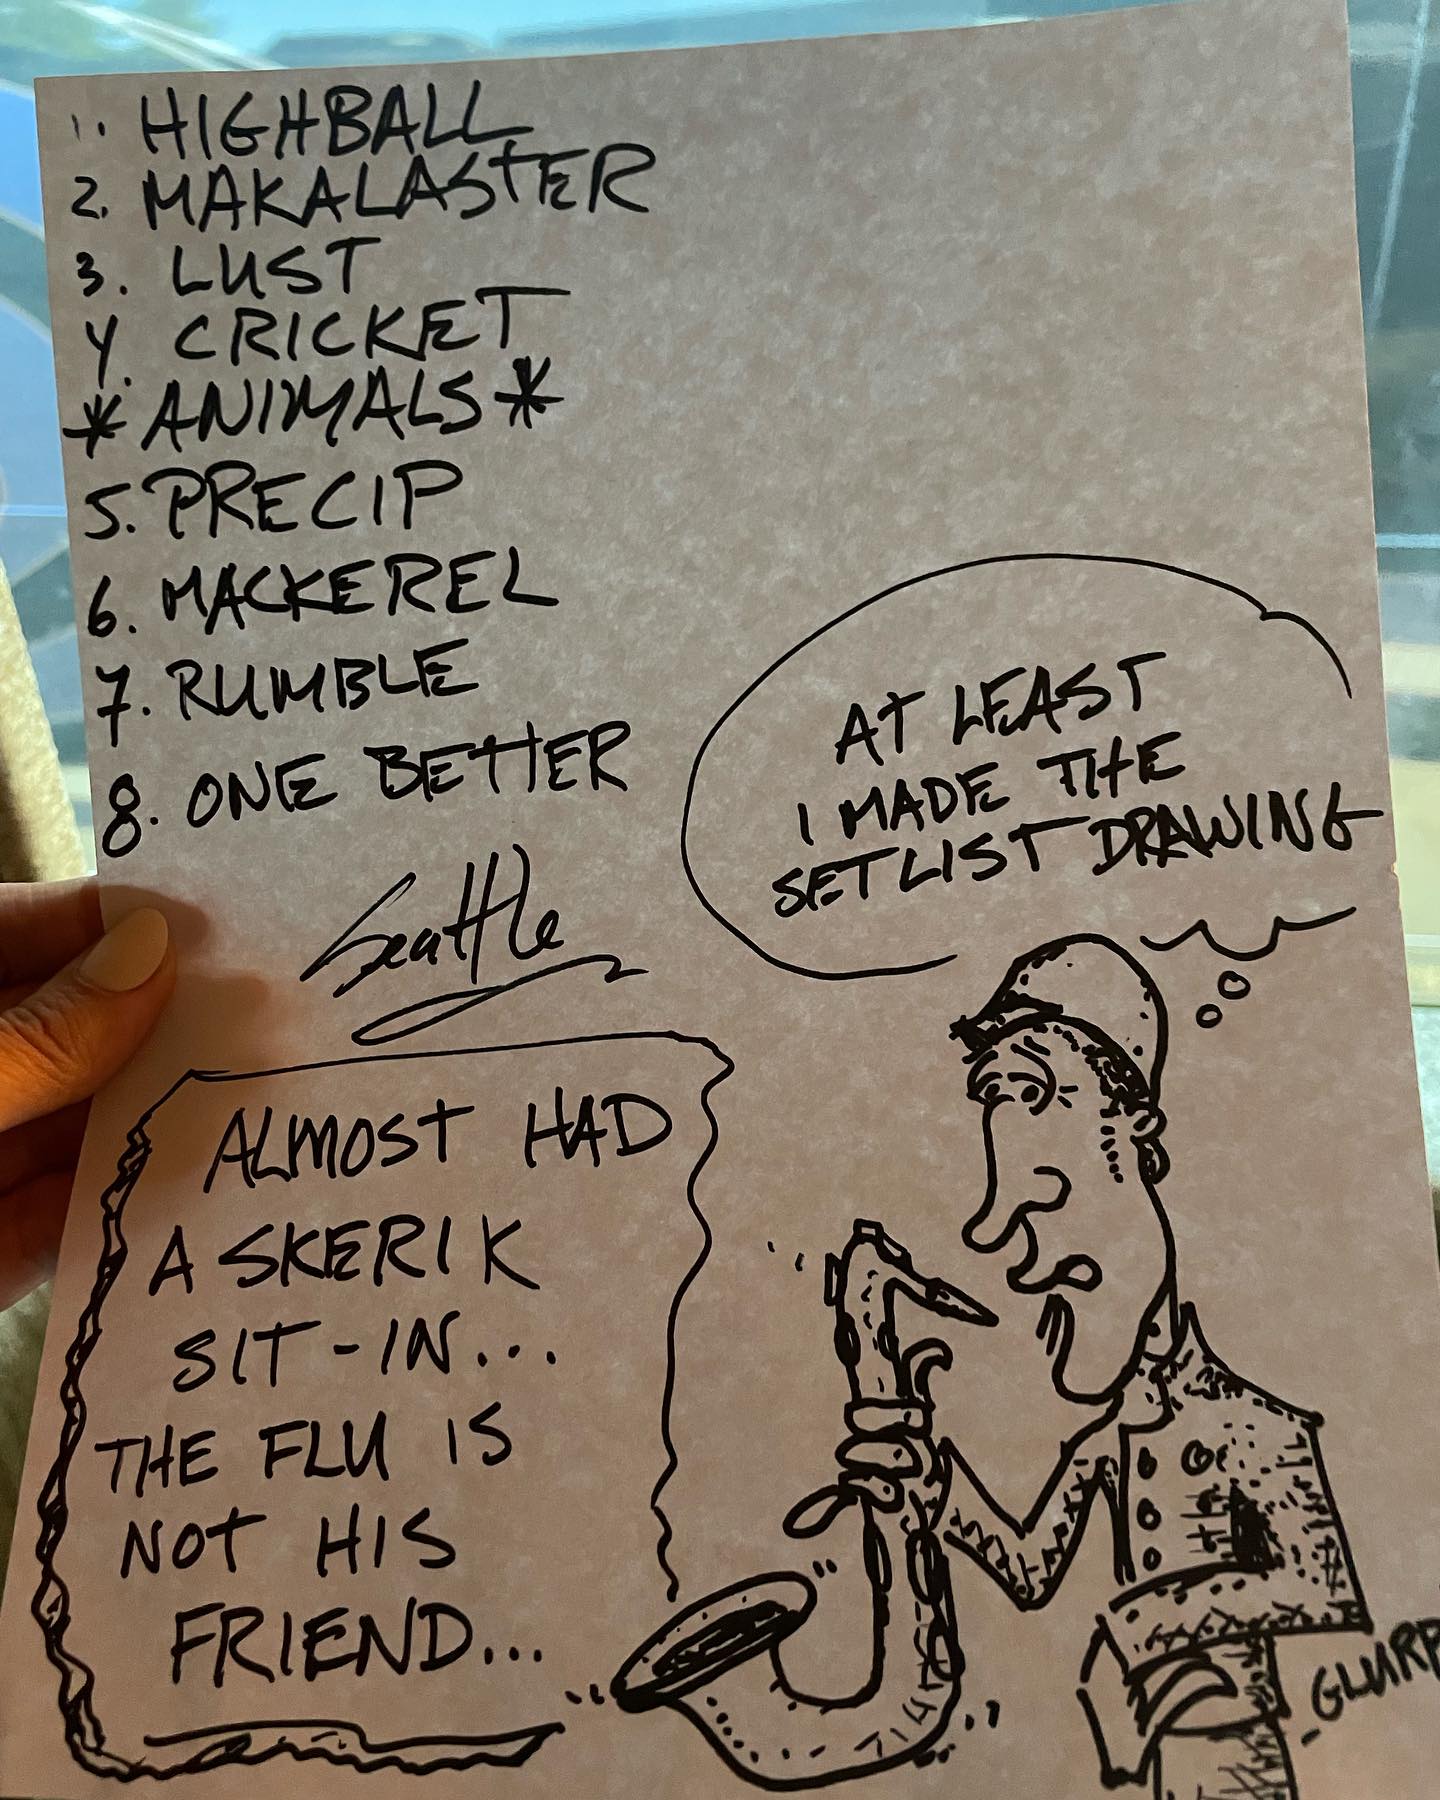 1. HIGHBALL
2. MAKALASTER
3. LUST
4. CRICKET
* ANIMALS *
5. PRECIP
6. MACKEREL
7. RUMBLE
8. ONE BETTER
Seattle
AT LEAST
I MADE THE
SETLIST DRAWING
ALMOST HAD
A SKERIK
SIT-IN...
THE FLU IS
NOT HIS
FRIEND...
GLURP